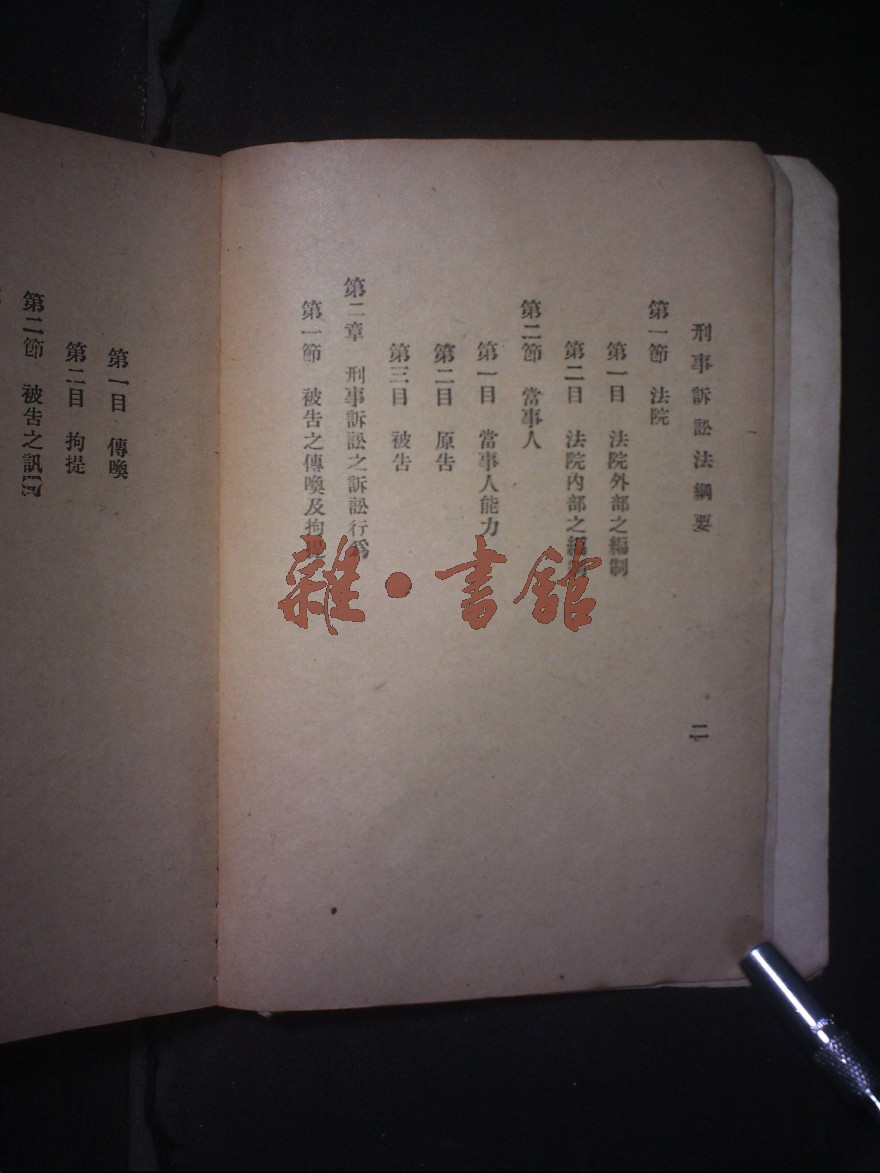 刑事訴訟法綱要
二
第一節 法院
第一目 法院外部之編制
第二目 法院內部之編制
第二節 當事人
第一目 當事人能力
第二目 原告
第三目 被告
第二章 刑事訴訟之訴訟行爲
第一節 被告之傳喚及拘提
第一目 傳喚
第二目 拘提
第二節 被告之訊問
雜·書館